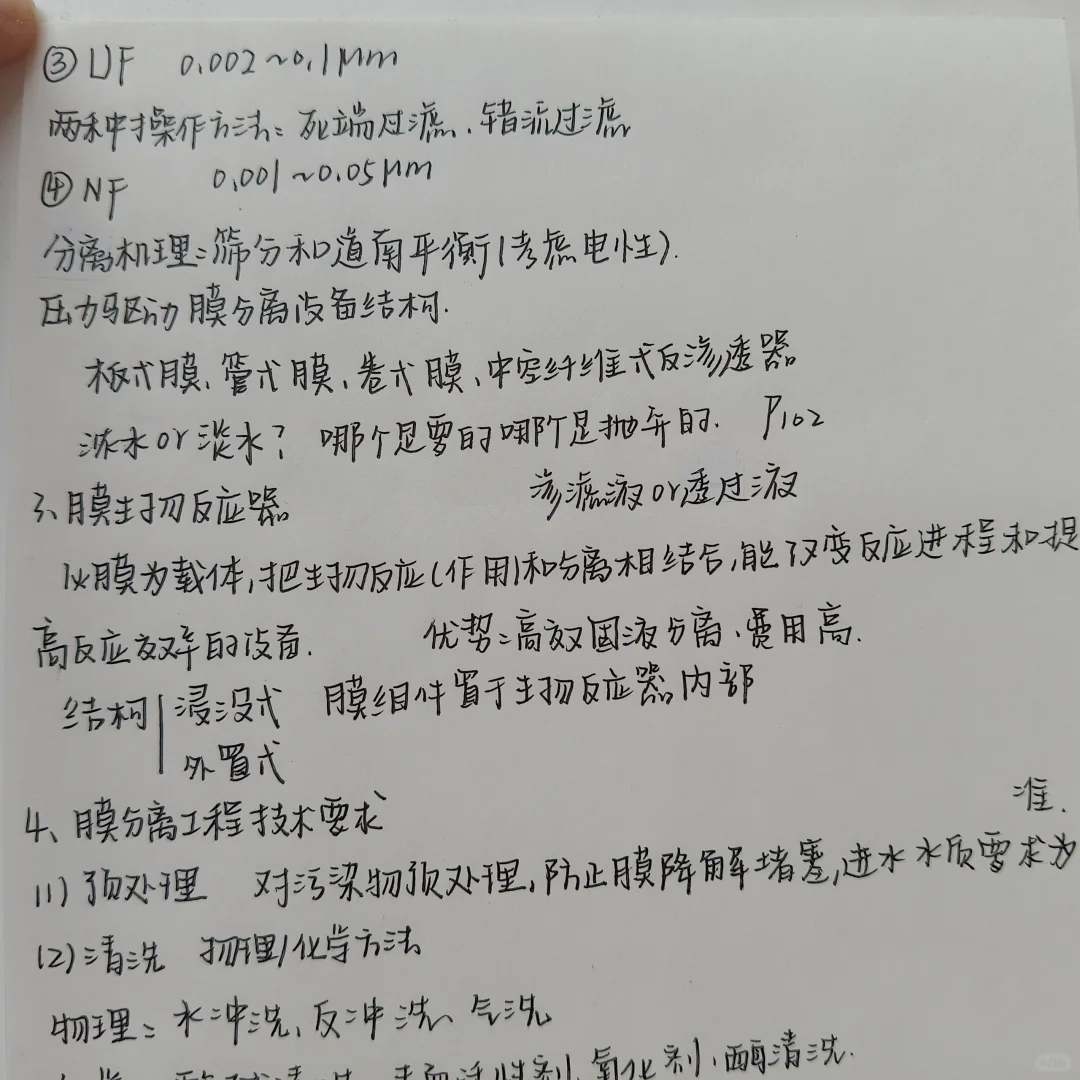 ③ UF 0.002~0.1μm
两种操作方法：死端过滤、错流过滤
④ NF 0.001~0.05μm
分离机理：筛分和道南平衡(考虑电性).
压力驱动膜分离设备结构.
板式膜、管式膜、卷式膜、中空纤维式反渗透器
浓水or淡水？ 哪个是要的哪个是抛弃的. P102
渗滤液or透过液
3、膜生物反应器
以膜为载体,把生物反应(作用)和分离相结合,能改变反应进程和提
高反应效率的设备. 优势：高效固液分离、费用高.
结构 浸没式 膜组件置于生物反应器内部
外置式
4、膜分离工程技术要求
准.
(1) 预处理 对污染物预处理,防止膜降解堵塞,进水水质要求为
(2) 清洗 物理/化学方法
物理：水冲洗、反冲洗、气洗
表面活性剂、氧化剂、酶清洗.